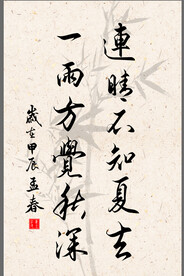 連晴不知夏去
一雨方覺秋深
歲在甲辰孟春